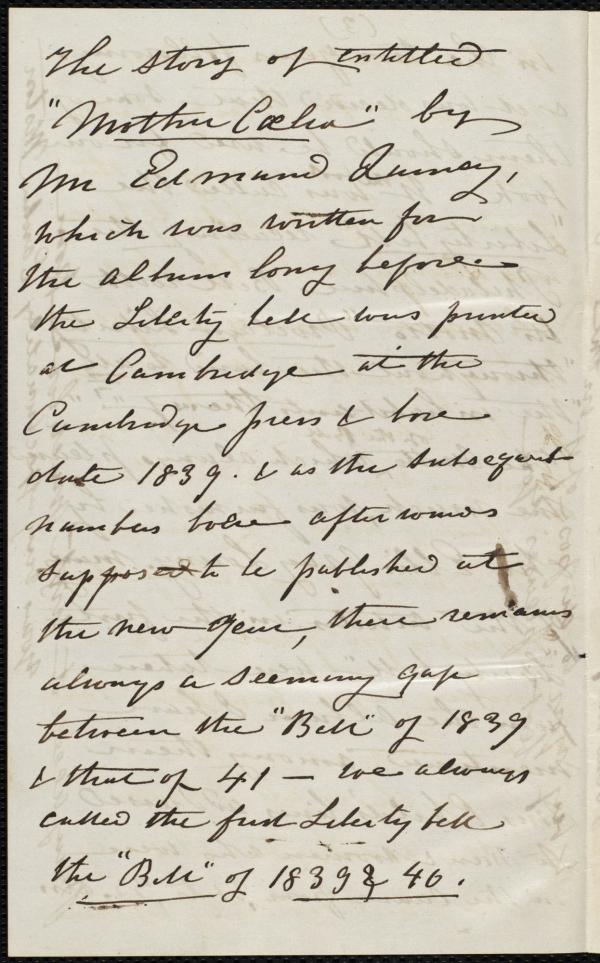 The story of entitled
"Mother Cœlia" by
Mr Edmund Quincy,
which was written for
the album long before
the Liberty bell was printed
at Cambridge at the
Cambridge press & bore
date 1839. & as the subsequent
numbers bore afterwards
supposed to be published at
the new year, there remains
always a seeming gap
between the "Bell" of 1839
& that of 41 — we always
called the first Liberty bell
the "Bell" of 1839 & 40.